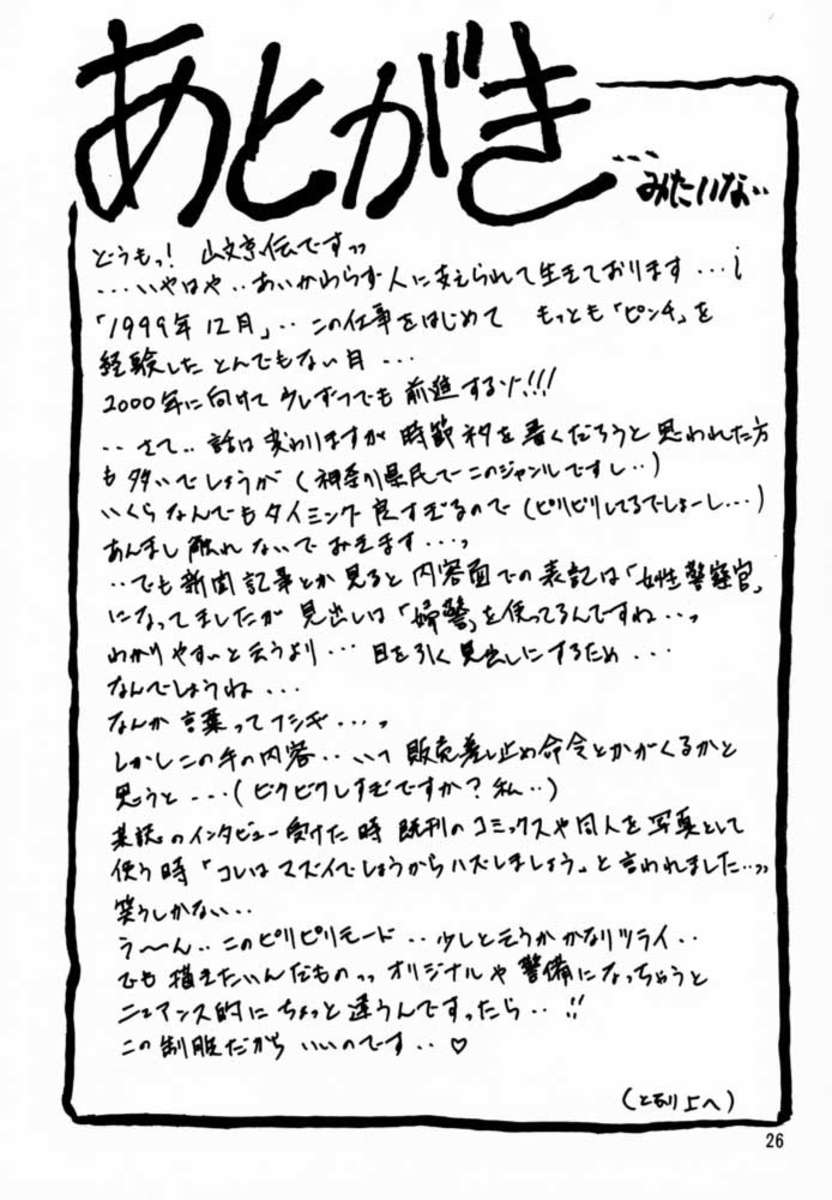 あとがき
…みたいな…
どうもっ! 山文京伝ですっっ
...いやはや..あいかわらず人に支えられて生きております...
「1999年12月」..この仕事をはじめて もっとも「ピンチ」を
経験した とんでもない月...
2000年に向けて少しずつでも前進するゾ!!!
..さて..話は変わりますが時節ネタを書くだろうと思われた方
も多いでしょうが(神奈川県民でこのジャンルですし..)
いくらなんでもタイミング良すぎるので(ピリピリしてるでしょーし...)
あんまし触れないでおきます...っ
..でも新聞記事とか見ると内容面での表記は「女性警察官」
になってましたが見出しは「婦警」を使ってるんですね...っ
わかりやすいと云うより...目を引く見出しにするため...
なんでしょうね...
なんか言葉ってフシギ...っ
しかしこの手の内容..いつ販売差し止め命令とかがくるかと
思うと...(ビクビクしすぎですか?私..)
某誌のインタビュー受けた時 既刊のコミックスや同人を写真として
使う時「コレはマズイでしょうからハズしましょう」と言われました..っっ
笑うしかない..
う〜〜ん..このピリピリモード..少しと云うかかなりツライ..
でも描きたいんだものっっオリジナルや警備になっちゃうと
ニュアンス的にちょっと違うんですったら..!!
この制服だからいいのです..♡
上へ)
26